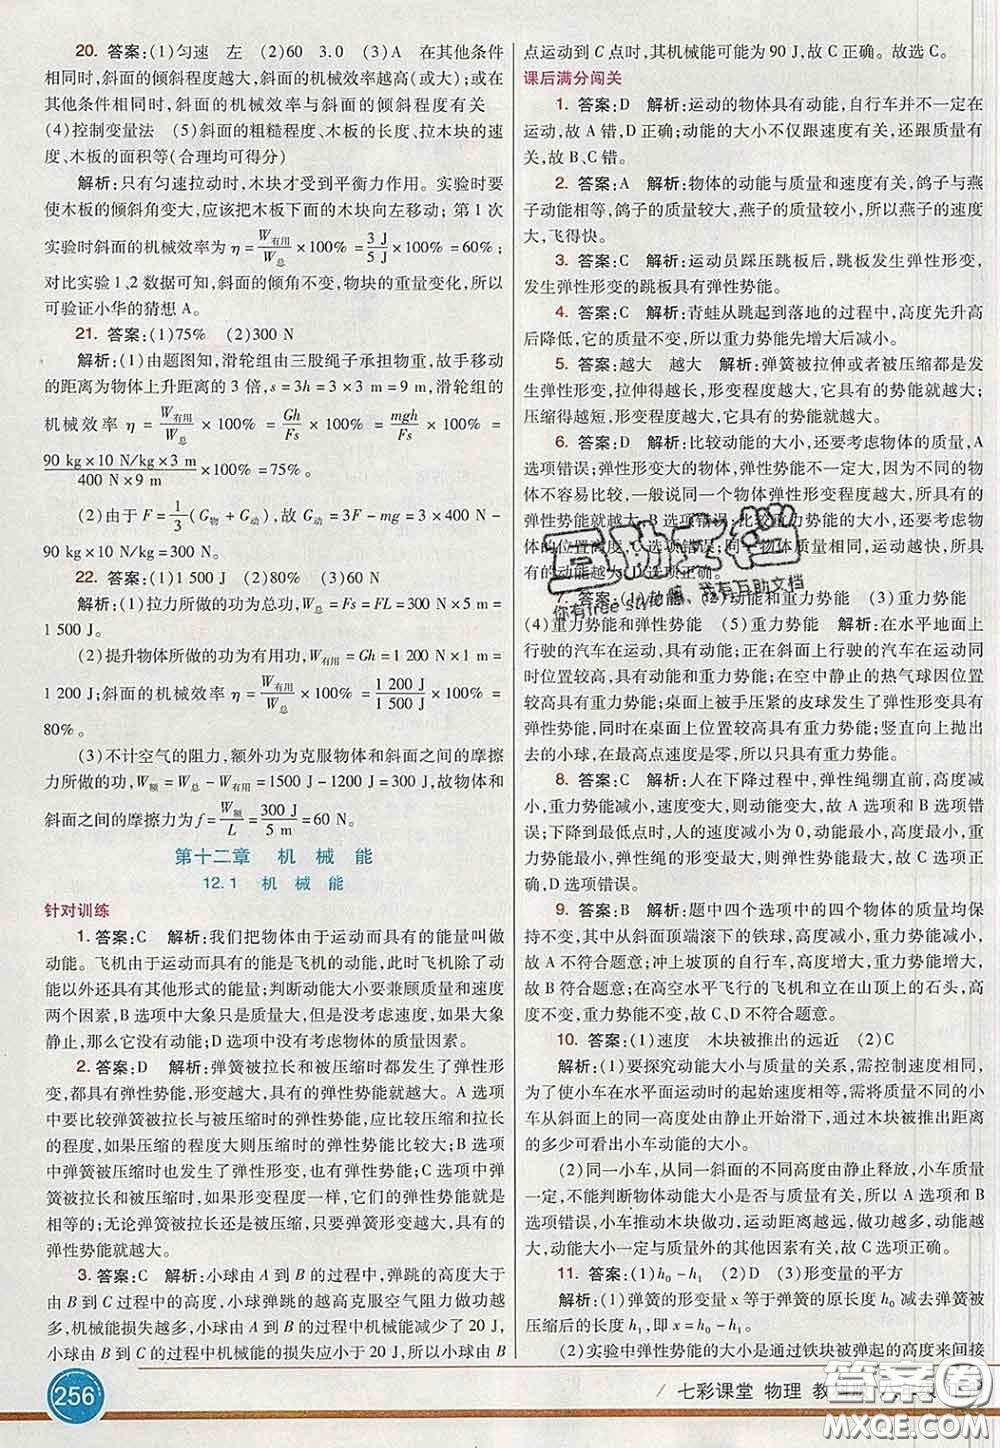 20. 答案:(1)匀速　左　(2)60　3.0　(3)A　在其他条件
相同时,斜面的倾斜程度越大,斜面的机械效率越高(或大);或在
其他条件相同时,斜面的机械效率与斜面的倾斜程度有关
(4)控制变量法　(5)斜面的粗糙程度、木板的长度、拉木块的速
度、木板的面积等(合理均可得分)
解析:只有匀速拉动时,木块才受到平衡力作用。实验时要
使木板的倾斜角变大,应该把木板下面的木块向左移动;第1次
实验时斜面的机械效率为 η = W有用/W总 × 100% = 3 J/5 J × 100% = 60%;
对比实验1、2数据可知,斜面的倾角不变,物块的重量变化,因此
可验证小华的猜想A。
21. 答案:(1)75%　(2)300 N
解析:(1)由题图知,滑轮组由三股绳子承担物重,故手移动
的距离为物体上升距离的3倍,s = 3h = 3 × 3 m = 9 m,滑轮组的
机械效率 η = W有用/W总 × 100% = Gh/Fs × 100% = mgh/Fs × 100% =
90 kg × 10 N/kg × 3 m/400 N × 9 m × 100% = 75%。
(2)由于 F = 1/3(G物 + G动),故 G动 = 3F - mg = 3 × 400 N -
90 kg × 10 N/kg = 300 N。
22. 答案:(1)1 500 J　(2)80%　(3)60 N
解析:(1)拉力所做的功为总功,W总 = Fs = FL = 300 N × 5 m =
1 500 J;
(2)提升物体所做的功为有用功,W有用 = Gh = 1 200 N × 1 m =
1 200 J;斜面的机械效率 η = W有用/W总 × 100% = 1 200 J/1 500 J × 100% =
80%。
(3)不计空气的阻力,额外功为克服物体和斜面之间的摩擦
力所做的功,W额 = W总 - W有用 = 1500 J - 1200 J = 300 J,故物体和
斜面之间的摩擦力为 f = W额/L = 300 J/5 m = 60 N。
第十二章　机 械 能
12.1　机 械 能
针对训练
1. 答案:C　解析:我们把物体由于运动而具有的能量叫做
动能。飞机由于运动而具有的能是飞机的动能,此时飞机除了动
能以外还具有其他形式的能量;判断动能大小要兼顾质量和速度
两个因素,B选项中大象只是质量大,但是没考虑速度,如果大象
静止,那么它没有动能;D选项中没有考虑汽车的质量因素。
2. 答案:D　解析:弹簧被拉伸和压缩时都发生了弹性形
变,都具有弹性势能,形变越大,弹性势能越大。A选项中没有
比较弹簧被拉长与被压缩时的弹性势能,应比较拉伸与压缩
的程度,如果压缩的程度大则压缩时的弹性势能比较大;B选项
中弹簧被压缩时也发生了弹性形变,也具有弹性势能;C选项中弹
簧被拉长和被压缩时,如果形变程度一样,它们的弹性势能就是
相等的;无论弹簧拉长还是被压缩,只要弹簧形变越大,具有的
弹性势能就越大。
3. 答案:C　解析:小球由A到B的过程中,弹跳的高度大于
由B到C过程中的高度,小球弹跳的越高克服空气阻力做功越
多,机械能损失越多,小球由A到B的过程中机械能损失了20 J,
小球由B到C的过程中机械能的损失应小于20 J,所以小球由B
点运动到C点时,其机械能可能为90 J,故C正确。故选C。
课后满分闯关
1. 答案:D　解析:运动的物体具有动能,自行车并不一定在
运动,故A错,D正确;动能的大小不仅跟速度有关,还跟质量有
关,故B、C错。
2. 答案:A　解析:物体的动能与质量和速度有关,鸽子与燕
子动能相等,鸽子的质量较大,燕子的质量较小,所以燕子的速度
大,飞得快。
3. 答案:C　解析:运动员踩压跳板后,跳板发生弹性形变,
发生弹性形变的跳板具有弹性势能。
4. 答案:C　解析:青蛙从跳起到落地的过程中,高度先升高
后降低,它的质量不变,所以重力势能先增大后减小。
5. 答案:越大　越大　解析:弹簧被拉伸或者被压缩都是发
生弹性形变,拉伸得越长,形变程度越大,它具有的势能就越大;
压缩得越短,形变程度越大,它具有的势能就越大。
6. 答案:D　解析:比较动能的大小,还要考虑物体的质量,A
选项错误;弹性形变大的物体,弹性势能不一定大,因为不同的物
体不易比较,一般说同一个物体弹性形变程度越大,所具有的
弹性势能就越大,B选项错误;比较重力势能的大小,还要考虑物
体的位置高度,C选项错误;同一物体质量相同,运动越快,所具
有的动能越大,D选项正确。
7. 答案:(1)动能　(2)动能和重力势能　(3)重力势能
(4)重力势能和弹性势能　(5)重力势能　解析:在水平地面上
行驶的汽车在运动,具有动能;正在斜面上行驶的汽车在运动同
时位置较高,具有动能和重力势能;在空中静止的热气球因位置
较高具有重力势能;桌面上被手压紧的皮球发生了弹性形变具有
弹性势能,同时在桌面上位置较高具有重力势能;竖直向上抛出
去的小球,在最高点速度是零,所以只具有重力势能。
8. 答案:C　解析:人在下降过程中,弹性绳绷直前,高度减
小,重力势能减小,速度变大,则动能变大,故A选项和B选项错
误;下降到最低点时,人的速度减小为0,动能最小,高度最小,重
力势能最小,弹性绳的形变最大,则弹性势能最大,故C选项正
确,D选项错误。
9. 答案:B　解析:题中四个选项中的四个物体的质量均保
持不变,从斜面顶端滚下的铁球,高度减小,重力势能减小,故A
不符合题意;冲上坡顶的自行车,高度增大,重力势能增大,
故B符合题意;在高空水平飞行的飞机和立在山顶上的石头,高
度均不变,重力势能均不变,故C、D不符合题意。
10. 答案:(1)速度　木块被推出的远近　(2)C
解析:(1)要探究动能大小与质量的关系,需控制速度相同,
为了使小车在水平面运动时的起始速度相等,需将质量不同的小
车从斜面上的同一高度处由静止开始滑下,通过木块被推出距离
的多少可看出小车动能的大小。
(2)同一小车,从同一斜面的不同高度由静止释放,小车质量
一定,不能判断物体动能大小是否与质量有关,所以A选项和B
选项错误,小车推动木块做功,运动距离越远,做功越多,动能越
大,动能大小一定与质量外的其他因素有关,故C选项正确。
11. 答案:(1)h₀ - h₁　(2)D　(3)形变量的平方
解析:(1)弹簧的形变量x等于弹簧的原长度h₀减去弹簧被
压缩后的长度h₁,即 x = h₀ - h₁。
(2)实验中弹性势能的大小是通过铁块被弹射的距离来间接
互助文档
你有free style的,我有互助文档
256
七彩课堂 物理
答案圈
MXQE.COM